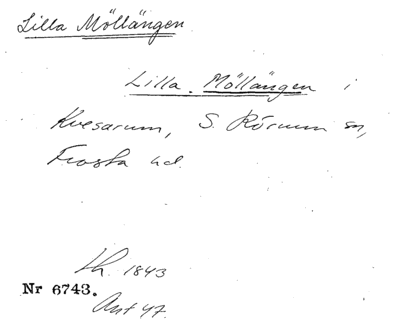 Lilla Möllängen
Lilla Möllängen i
Kvesarum, S. Rörum sn,
Frosta hd.
Lh. 1843
Nr 6743.
Ant 47.